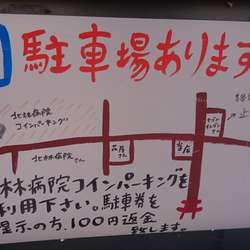 駐車場あります
北林病院
コインパーキング
北林病院さん
当店
セブンイレブンさん
林病院コインパーキングを
利用下さい。駐車券を
呈示の方、100円返金
致します。